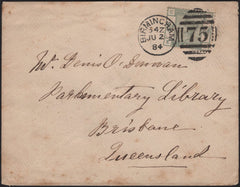 BIRMINGHAM
175
JU 2
84
Mr. Denis O'Donovan
Parliamentary Library
Brisbane
Queensland